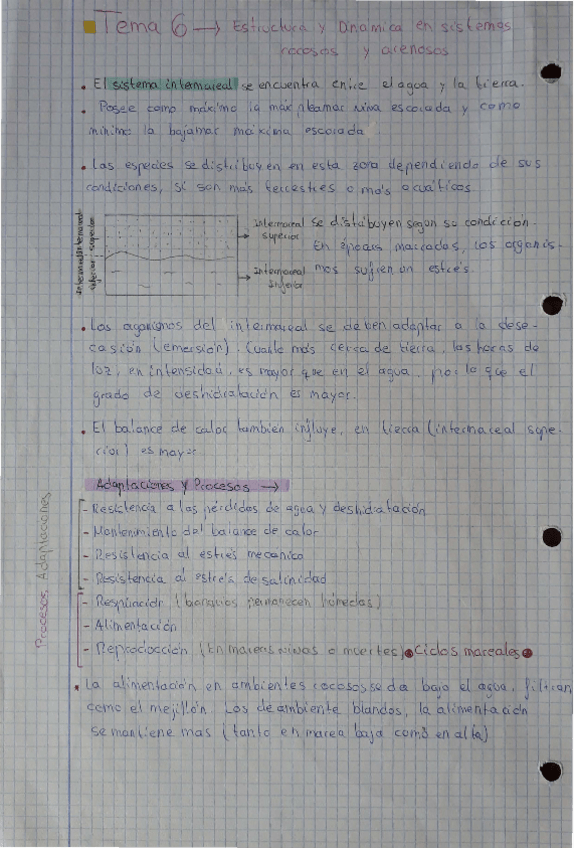 Tema 6 → Estructura y Dinámica en sistemas
rocosos y arenosos
• El sistema intermareal se encuentra entre el agua y la tierra.
• Posee como máximo la máx pleamar viva escorada y como
mínimo la bajamar máxima escorada
• Las especies se distribuyen en esta zona dependiendo de sus
condiciones, si son más terrestres o más acuáticos.
Intermareal superior
Intermareal inferior
Intermareal superior
Intermareal inferior
Se distribuyen segon so condición.
En épocas marcadas, los organis-
mos sufren un estrés.
• Los organignos del intermareal se deben adaptar a la dese-
casión (emersión). Cuanto más cerca de tierra, las horas de
loz, en intensidad, es mayor que en el agua, por lo que el
grado de deshidratación es mayor.
• El balance de calor tambien influye, en tierra (intermareal supe-
rior) es mayor
Adaptaciones y Procesos →
Procesos Adaptaciones
- Resistencia a las pérdidas de agua y deshidratación
- Mantenimiento del balance de calor
- Resistencia al estrés mecánico
- Resistencia al estrés de salinidad
- Respiración (branquias permanecen húmedas)
- Alimentación
- Reproducción (En mareas vivas o muertes) • Ciclos mareales •
• La alimentación en ambientes rocosos se da bajo el agua, filtran
como el mejillón. Los de ambiente blandos, la alimentación
se mantiene mas (tanto en marea baja como en alta)